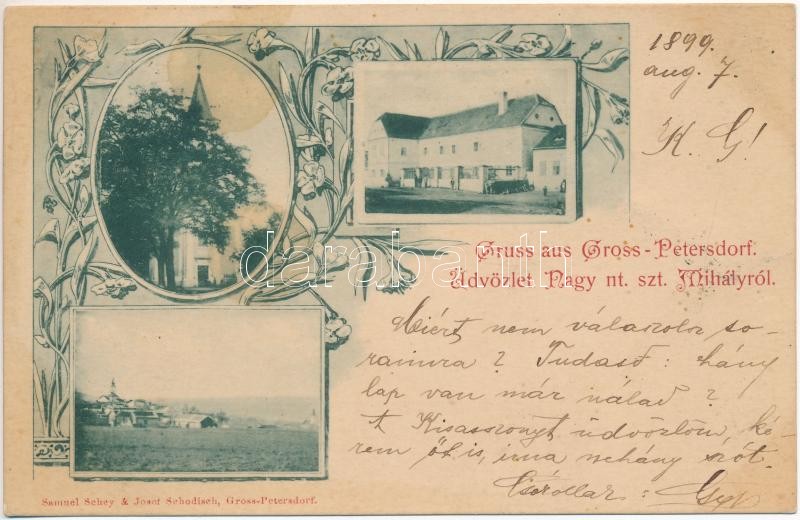 1899.
aug. 7.
K. G!
Gruss aus Gross-Petersdorf.
Üdvözlet Nagy nt. szt. Mihályról.
darabanth
Miért nem válaszolsz so-
raimra? Tudasd: hány
lap van már nálad?
A Kisasszonyt üdvözlöm, ké-
rem őt is, irna nehány szót.
Csókollak:
Samuel Schey & Josef Schodisch, Gross-Petersdorf.